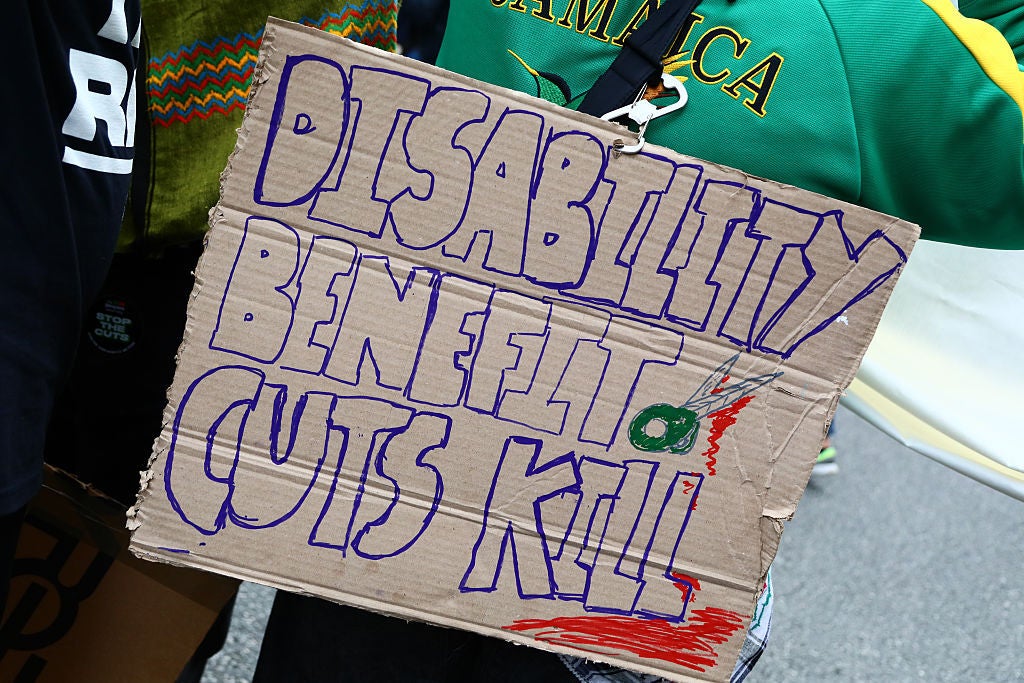 JAMAICA
DISABILITY
BENEFIT
CUTS KILL
STOP
THE
CUTS